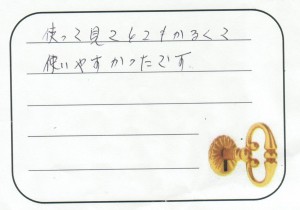 使って見てとてもかるくて
使いやすかったです。